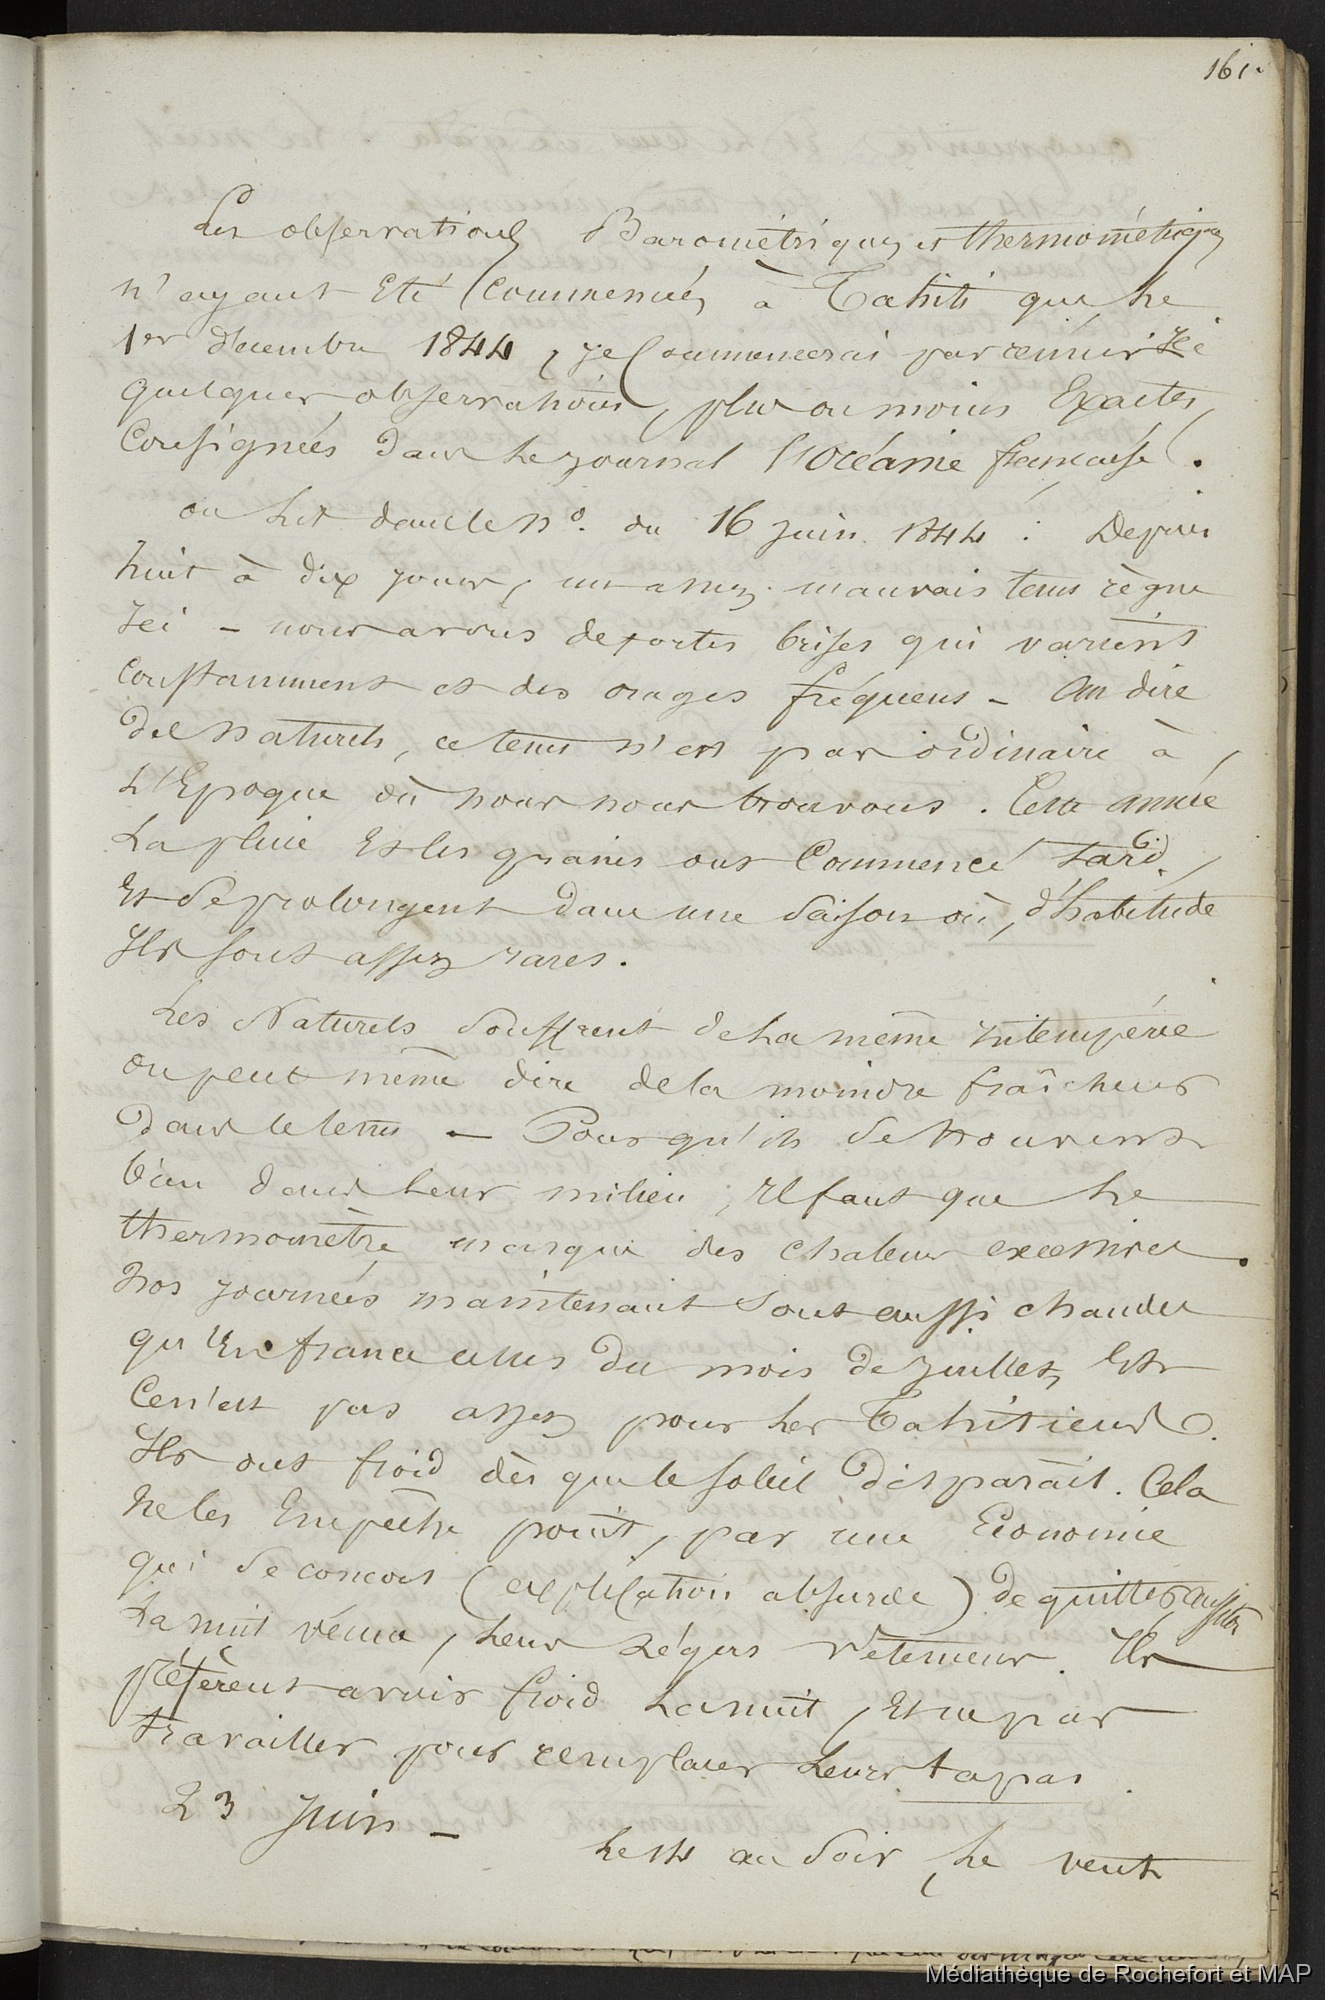 161.
Les observations Barométriques et thermométriques
n'ayant Eté Commencées à Tahiti que le
1er décembre 1844, je Commencerai par réunir Ici
quelques observations, plus ou moins Exactes,
Consignées dans le journal l'Océanie française.
on Lit dans le No. du 16 juin 1844 : Depuis
huit à dix jours, un assez mauvais tems règne
Ici - nous avons de fortes brises qui varient
Constamment et des orages fréquens - Au dire
des naturels, ce tems n'est pas ordinaire à
L'Epoque où nous nous trouvons. Cette année
La pluie Et les grains ont Commencé tard,
Et Se prolongent dans une Saison où, d'habitude
Ils sont assez rares.
Les Naturels Souffrent de La même Intempérie
on peut même dire de la moindre fraîcheur
dans le tems - Pour qu'ils Se trouvent
bien dans leur milieu, Il faut que le
thermomètre marque des chaleurs excessives.
Nos journées maintenant Sont aussi chaudes
qu'En france celles du mois de Juillet, Et
Ce n'est pas assez pour les Tahitiens.
Ils ont froid dès que le soleil disparaît. Cela
ne les Empêche point, par une Economie
qui Se conçoit (explication absurde) de quitter, aussitôt
La nuit venue, leurs Légers Vêtemens. Ils
préfèrent avoir froid La nuit, Et ne pas
travailler pour remplacer leurs tapas.
23 Juin -
Le 14 au Soir, le vent
Médiathèque de Rochefort et MAP